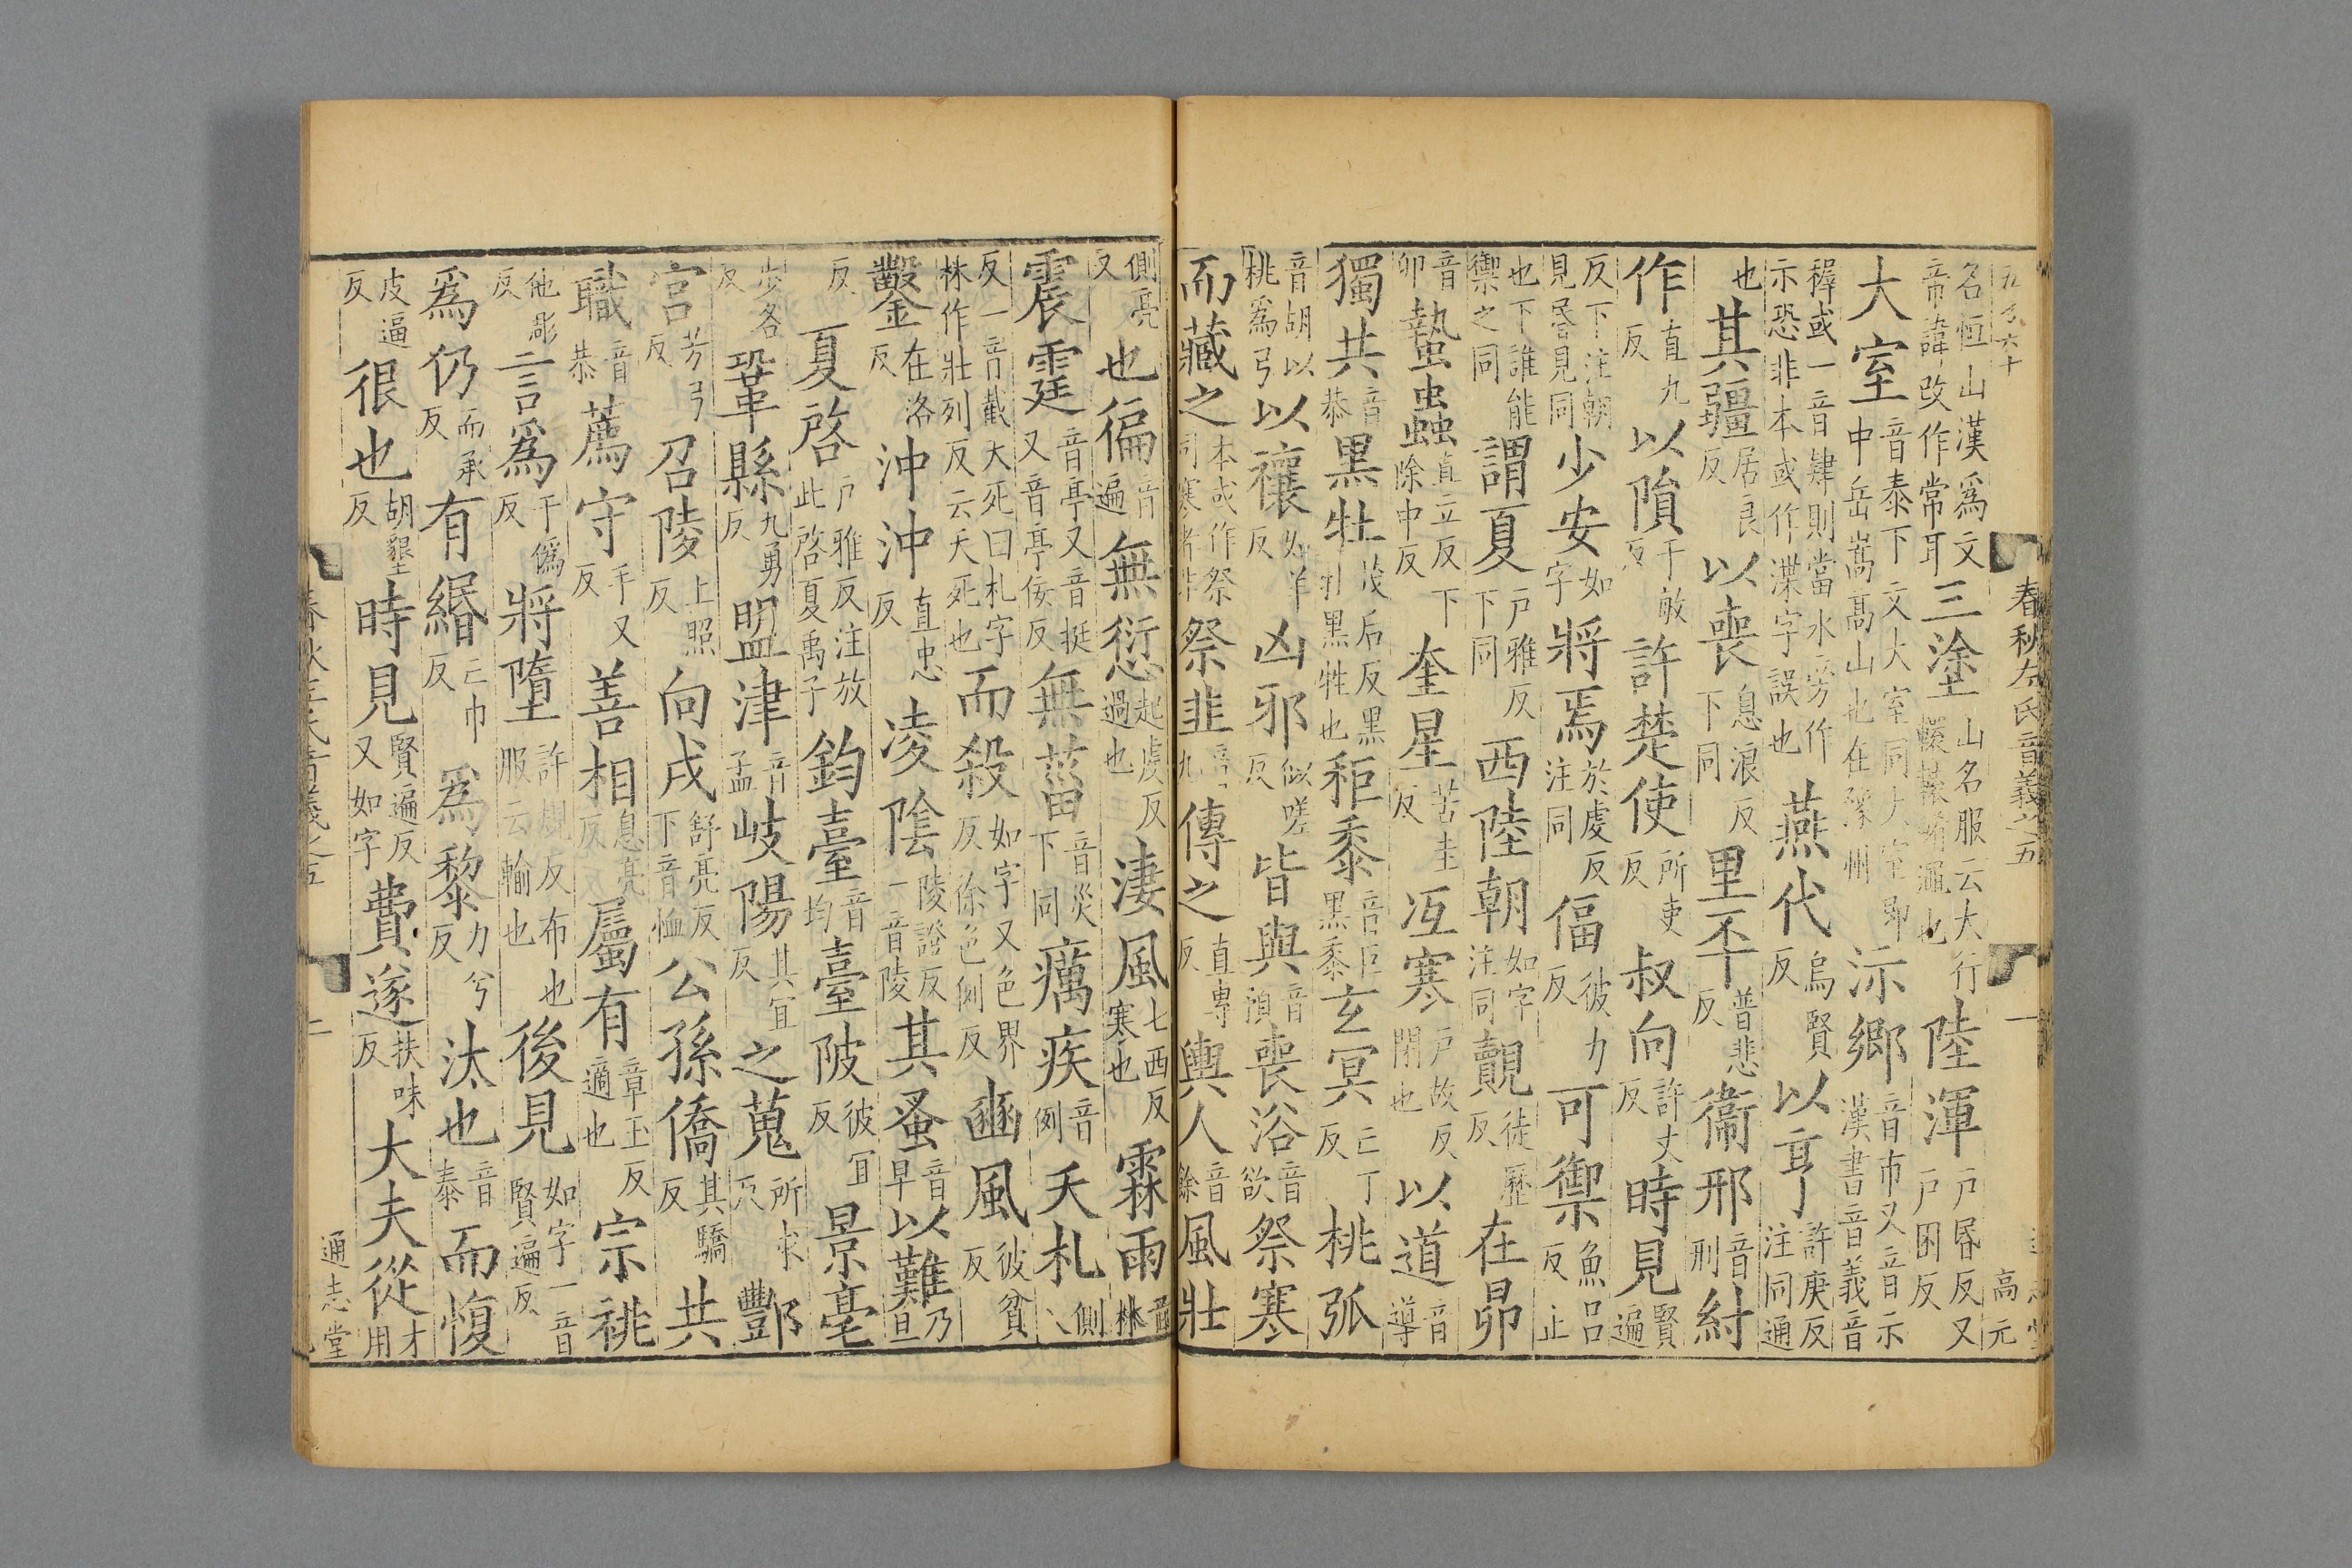 春秋左氏音義之五 一 高元
名恒山漢爲文帝諱改作常耳三塗山名服云大行轘轅崤澠也陸渾戶昏反又戶困反
大室音泰下文大室同大室即中岳嵩高山也在豫州沶鄉音市又音示漢書音義音
稺或一音肄則當水旁作示恐非本或作渫字誤也燕代烏賢反以亨許庚反注同通
也其疆居良反以喪息浪反下同里丕普悲反衞邢音刑紂
作直九反以隕于敏反許楚使所吏反叔向許丈反時見賢遍
反下注朝見昏見同少安如字將焉於虔反注同偪彼力反可禦魚呂反止
也下誰能禦之同謂夏戶雅反下同西陸朝如字注同覿徒歷反在昴
音卯蟄蟲直立反下除中反奎星苦圭反冱寒戶故反閉也以道音導
獨共音恭黑牡茂后反黑牡黑牲也秬黍音巨黑黍玄冥亡丁反桃弧
音胡以桃爲弓以禳如羊反凶邪似嗟反皆與音預喪浴音欲祭寒
而藏之本或作祭司寒者非祭韭音九傳之直專反輿人音餘風壯
側亮反也徧音遍無愆起虔反過也淒風七西反寒也霖雨音林
震霆音亭又音挺又音亭佞反無菑音災下同癘疾音例夭札側八
反一音截大死曰札字林作壯列反云夭死也而殺如字又色界反徐色例反豳風彼貧反
鑿在洛反沖沖直忠反凌陰陵證反一音陵其蚤音早以難乃旦
反夏啓戶雅反注放此啓夏禹子鈞臺音均臺陂彼宜反景亳
步各反鞏縣九勇反盟津音孟岐陽其宜反之蒐所求反酆
宮芳弓反召陵上照反向戌舒亮反下音恤公孫僑其驕反共
職音恭薦守手又反善相息亮反屬有章玉反適也宗祧
他彫反言爲于僞反將墮許規反布也服云輸也後見如字一音賢遍反
爲仍而承反有緡亡巾反爲黎力兮反汰也音泰而愎
皮逼反很也胡墾反時見賢遍反又如字費遂扶味反大夫從才用
春秋左氏音義之五 二 通志堂